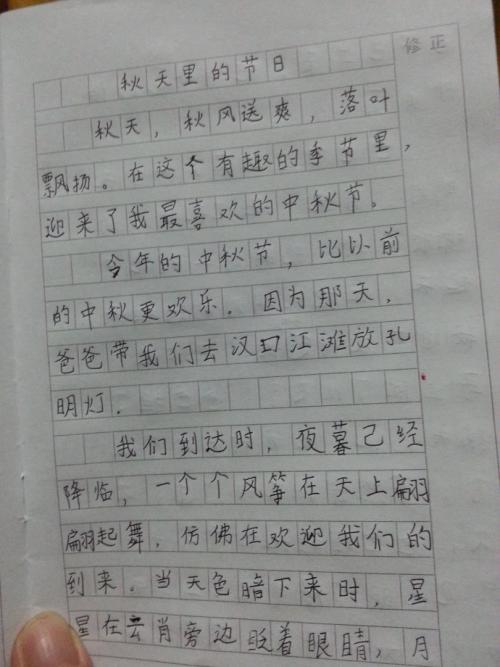 修正
秋天里的节日
秋天，秋风送爽，落叶
飘扬。在这个有趣的季节里，
迎来了我最喜欢的中秋节。
今年的中秋节，比以前
的中秋更欢乐。因为那天，
爸爸带我们去汉口江滩放孔
明灯．
我们到达时，夜暮己经
降临，一个个风筝在天上翩
翩起舞，仿佛在欢迎我们的
到来．当天色暗下来时，星
星在云肖旁边眨着眼睛，月